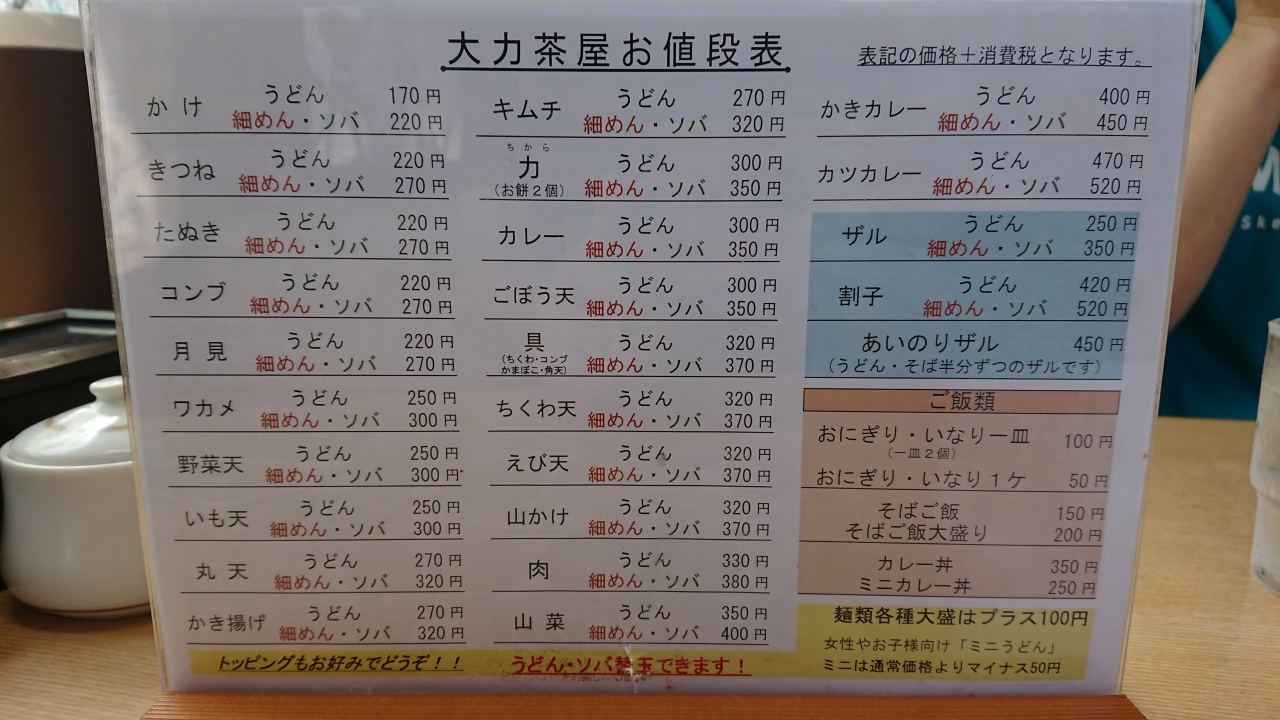 大力茶屋お値段表
表記の価格＋消費税となります。
かけ うどん 170円
細めん・ソバ 220円
きつね うどん 220円
細めん・ソバ 270円
たぬき うどん 220円
細めん・ソバ 270円
コンブ うどん 220円
細めん・ソバ 270円
月見 うどん 220円
細めん・ソバ 270円
ワカメ うどん 250円
細めん・ソバ 300円
野菜天 うどん 250円
細めん・ソバ 300円
いも天 うどん 250円
細めん・ソバ 300円
丸天 うどん 270円
細めん・ソバ 320円
かき揚げ うどん 270円
細めん・ソバ 320円
トッピングもお好みでどうぞ！！
キムチ うどん 270円
細めん・ソバ 320円
ちから
力 うどん 300円
（お餅２個） 細めん・ソバ 350円
カレー うどん 300円
細めん・ソバ 350円
ごぼう天 うどん 300円
細めん・ソバ 350円
具 うどん 320円
（ちくわ・コンブ
かまぼこ・角天） 細めん・ソバ 370円
ちくわ天 うどん 320円
細めん・ソバ 370円
えび天 うどん 320円
細めん・ソバ 370円
山かけ うどん 320円
細めん・ソバ 370円
肉 うどん 330円
細めん・ソバ 380円
山菜 うどん 350円
細めん・ソバ 400円
うどん・ソバ替玉できます！
かきカレー うどん 400円
細めん・ソバ 450円
カツカレー うどん 470円
細めん・ソバ 520円
ザル うどん 250円
細めん・ソバ 350円
割子 うどん 420円
細めん・ソバ 520円
あいのりザル 450円
（うどん・そば半分ずつのザルです）
ご飯類
おにぎり・いなり一皿 100円
（一皿２個）
おにぎり・いなり１ケ 50円
そばご飯 150円
そばご飯大盛り 200円
カレー丼 350円
ミニカレー丼 250円
麺類各種大盛はプラス100円
女性やお子様向け「ミニうどん」
ミニは通常価格よりマイナス50円